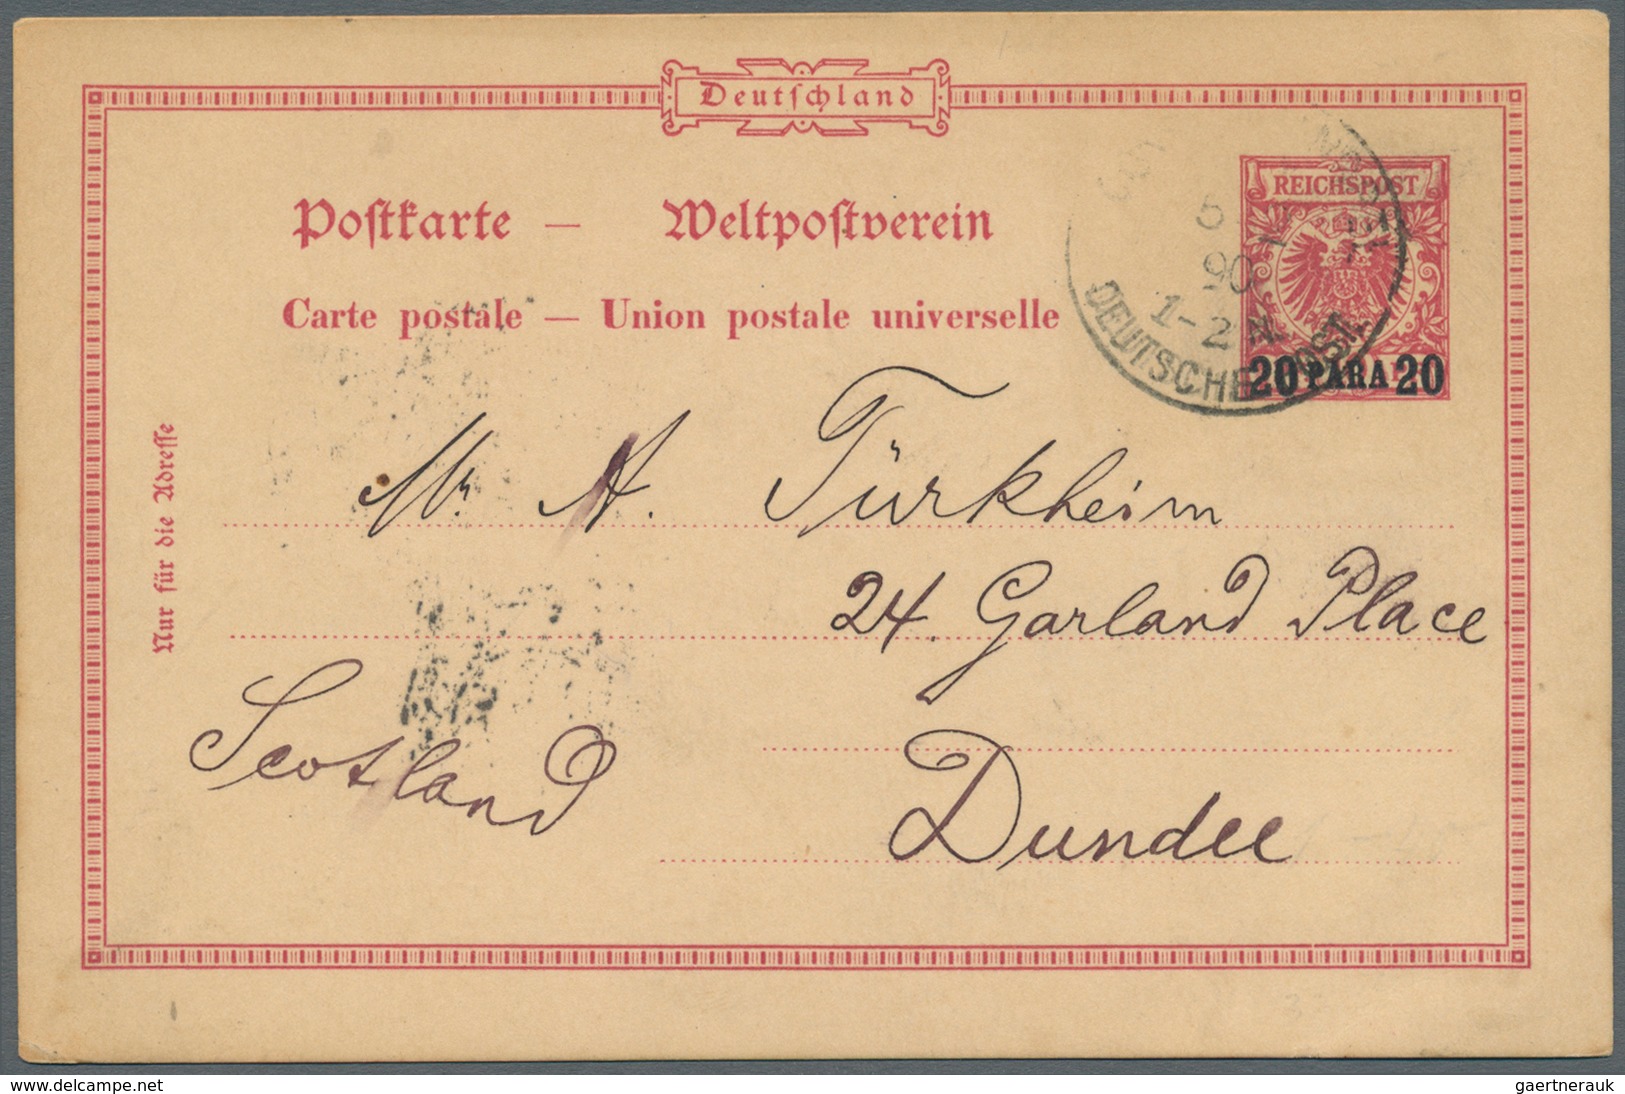 Deutſchland
REICHSPOST
Poſtkarte — Weltpoſtverein
Carte postale — Union postale universelle
5
90
1-2 N.
DEUTSCHE POST
20 PARA 20
Nur für die Adreſſe
Mr. A. Türkheim
24. Garland Place
Scotland
Dundee
delcampe.net
gaertnerauk